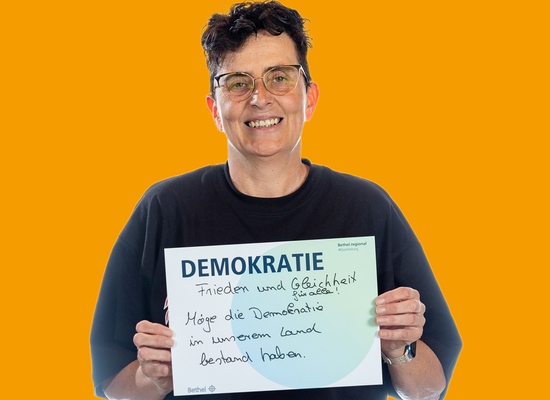 Bethel regional
DEMOKRATIE
Frieden und Gleichheit
für alle!
Möge die Demokratie
in unserem Land
bestand haben.
Bethel